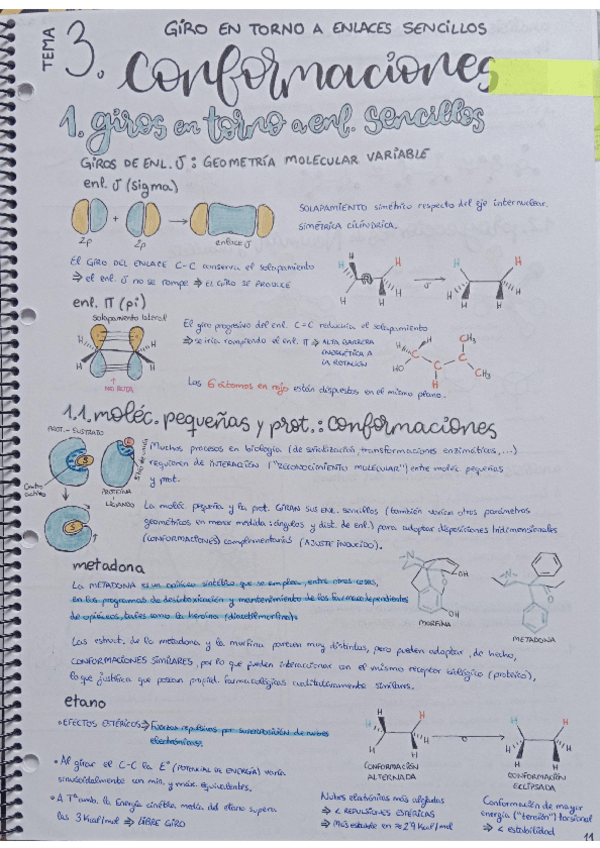 TEMA
3.
GIRO EN TORNO A ENLACES SENCILLOS
conformaciones
1. giros en torno a enl. sencillos
GIROS DE ENL. σ : GEOMETRÍA MOLECULAR VARIABLE
enl. σ (sigma)
2p + 2p → enlace σ
SOLAPAMIENTO simétrico respecto del eje internuclear.
SIMETRÍA CILÍNDRICA.
El GIRO DEL ENLACE C-C conserva el solapamiento
⇒ el enl. σ no se rompe ⇒ EL GIRO SE PRODUCE
H H H H H H
σ
H H H H H H
enl. π (pi)
solapamiento lateral
H H H H
NO ROTA
El giro progresivo del enl. C=C reduciría el solapamiento
⇒ se iría rompiendo el enl. π ⇒ ALTA BARRERA
ENERGÉTICA A
LA ROTACIÓN
H CH3
H3C C C C
HO C CH3
H
Los 6 átomos en rojo están dispuestos en el mismo plano.
1.1. moléc. pequeñas y prot.: conformaciones
PROT.-SUSTRATO
S
Centro activo
S
PROTEÍNA
LIGANDO
S
Muchos procesos en biología (de señalización, transformaciones enzimáticas, ...)
requieren de INTERACCIÓN ("RECONOCIMIENTO MOLECULAR") entre moléc. pequeñas
y prot.
La moléc. pequeña y la prot. GIRAN SUS ENL. sencillos (también varían otros parámetros
geométricos en menor medida: ángulos y dist. de enl.) para adoptar disposiciones tridimensionales
(CONFORMACIONES) complementarias (AJUSTE INDUCIDO).
metadona
La METADONA es un opiáceo sintético que se emplea, entre otras cosas,
en los programas de desintoxicación y mantenimiento de los farmacodependientes
de opiáceos, tales como la heroína (diacetilmorfina).
OH
OH
MORFINA
METADONA
Las estruct. de la metadona y la morfina parecen muy distintas, pero pueden adoptar, de hecho,
CONFORMACIONES SIMILARES, por lo que pueden interaccionar con el mismo receptor biológico (proteína),
lo que justifica que posean propied. farmacológicas cualitativamente similares.
etano
• EFECTOS ESTÉRICOS ⇒ Fuerzas repulsivas por superposición de nubes
electrónicas.
• Al girar el C-C la Eº (POTENCIAL DE ENERGÍA) varía
sinusoidalmente con mín. y máx. equivalentes.
• A Tª amb. la Energía cinética media del etano supera
las 3 Kcal/mol ⇒ LIBRE GIRO
H H H H H H
σ
H H H H H H
CONFORMACIÓN
ALTERNADA
CONFORMACIÓN
ECLIPSADA
Nubes electrónicas más alejadas
⇒ < REPULSIONES ESTÉRICAS
⇒ Más estable en ≈ 2.9 Kcal/mol
Conformación de mayor
energía ("tensión") torsional
⇒ < estabilidad
11